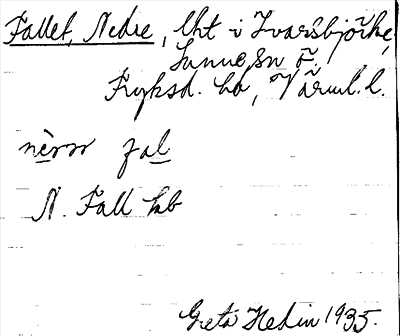 Fallet, Nedre, lht i Ivarsbjörke,
Sunne sn ö.
Fryksd. hd, Värml. l.
nèrr fal
N. Fall hab
Greta Hedin 1935.